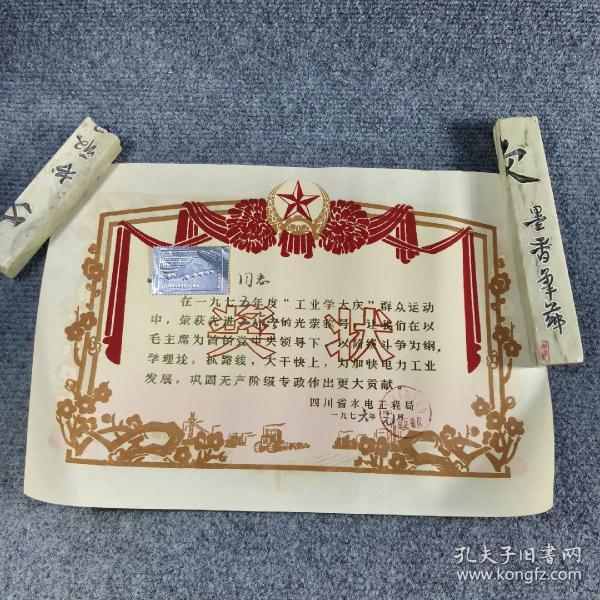 同志
在一九七五年度“工业学大庆”群众运动
中，荣获先进工作者的光荣称号，让我们在以
毛主席为首的党中央领导下，以阶级斗争为纲，
学理论，抓路线，大干快上，为加快电力工业
发展，巩固无产阶级专政作出更大贡献。
奖状
四川省水电工程局
一九七六年元月
墨香笔节
孔夫子旧书网
www.kongfz.com